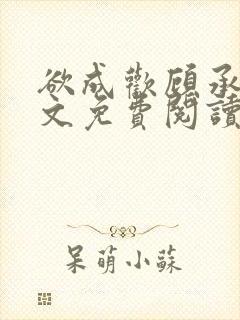 欲成歡顧承
文免費閱讀
呆萌小蘇